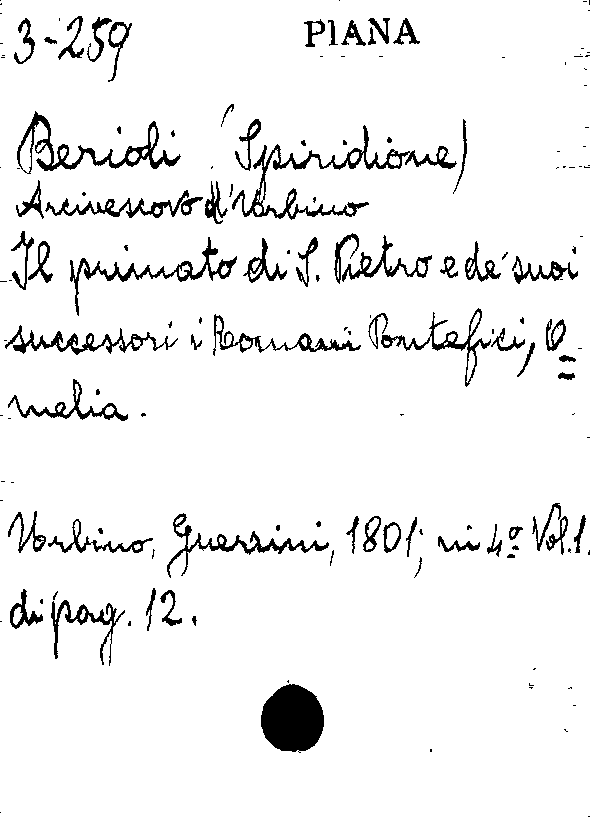 3-259 PIANA
Berioli (Spiridione)
Arcivescovo d'Urbino
Il primato di S. Pietro e de' suoi
successori i Romani Pontefici, O=
melia.
Urbino, Guerrini, 1801; in 4º Vol. 1.
di pag. 12.